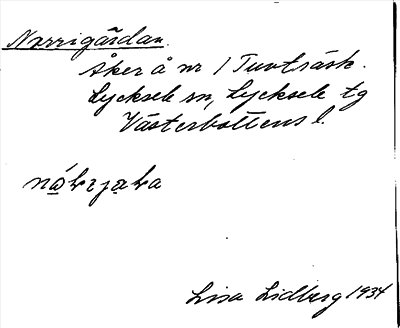 Norrigårdan.
Åker å nr 1 Tuvträsk.
Lycksele sn, Lycksele tg
Västerbottens l.
Lisa Lidberg 1934